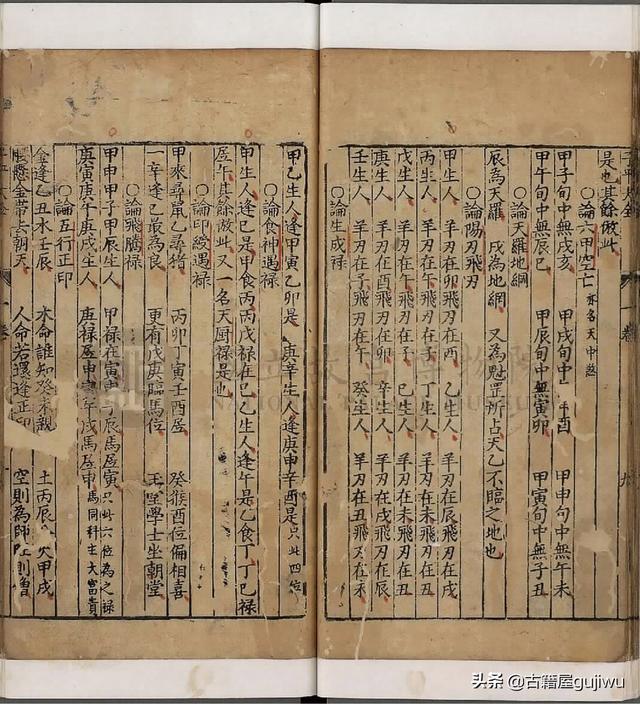 是也其餘倣此
○論六甲空亡 亦名天中煞
甲子旬中無戌亥 甲戌旬中 申酉 甲申旬中無午未
甲午旬中無辰巳 甲辰旬中無寅卯 甲寅旬中無子丑
○論天羅地網
辰為天羅 戌為地網 又為魁罡所占天乙不臨之地也
○論陽刃飛刃
甲生人 羊刃在卯飛刃在酉 乙生人 羊刃在辰飛刃在戌
丙生人 羊刃在午飛刃在子 丁生人 羊刃在未飛刃在丑
戊生人 羊刃在午飛刃在子 己生人 羊刃在未飛刃在丑
庚生人 羊刃在酉飛刃在卯 辛生人 羊刃在戌飛刃在辰
壬生人 羊刃在子飛刃在午 癸生人 羊刃在丑飛刃在未
○論生成禄
甲乙生人逢甲寅乙卯是 庚辛生人逢庚申辛酉是 只此四位
○論食神遇禄
甲生人逢丙是甲食丙丙戊禄在巳乙生人逢午是乙食丁丁己禄
居午其餘倣此又一名天厨禄是也
○論印綬遇禄
甲來尋鼠乙尋猪 丙卯丁寅壬酉居 癸猴酉位偏相喜
一辛逢巳最為良 更有戊庚臨馬位 玉堂學士坐朝堂
○論飛騰禄
甲申甲子甲辰生人 甲禄在寅申子辰馬居寅 只此六位為之禄
庚寅庚午庚戌生人 庚禄居申寅午戌馬居申 馬同科主大富貴
○論五行正印
金逢乙丑水壬辰 木命誰知癸未親 土丙辰 火甲戌
腰懸金帶去朝天 人命若還逢正印 空則為師 則僧
一卷
頭条 @古籍屋gujiwu